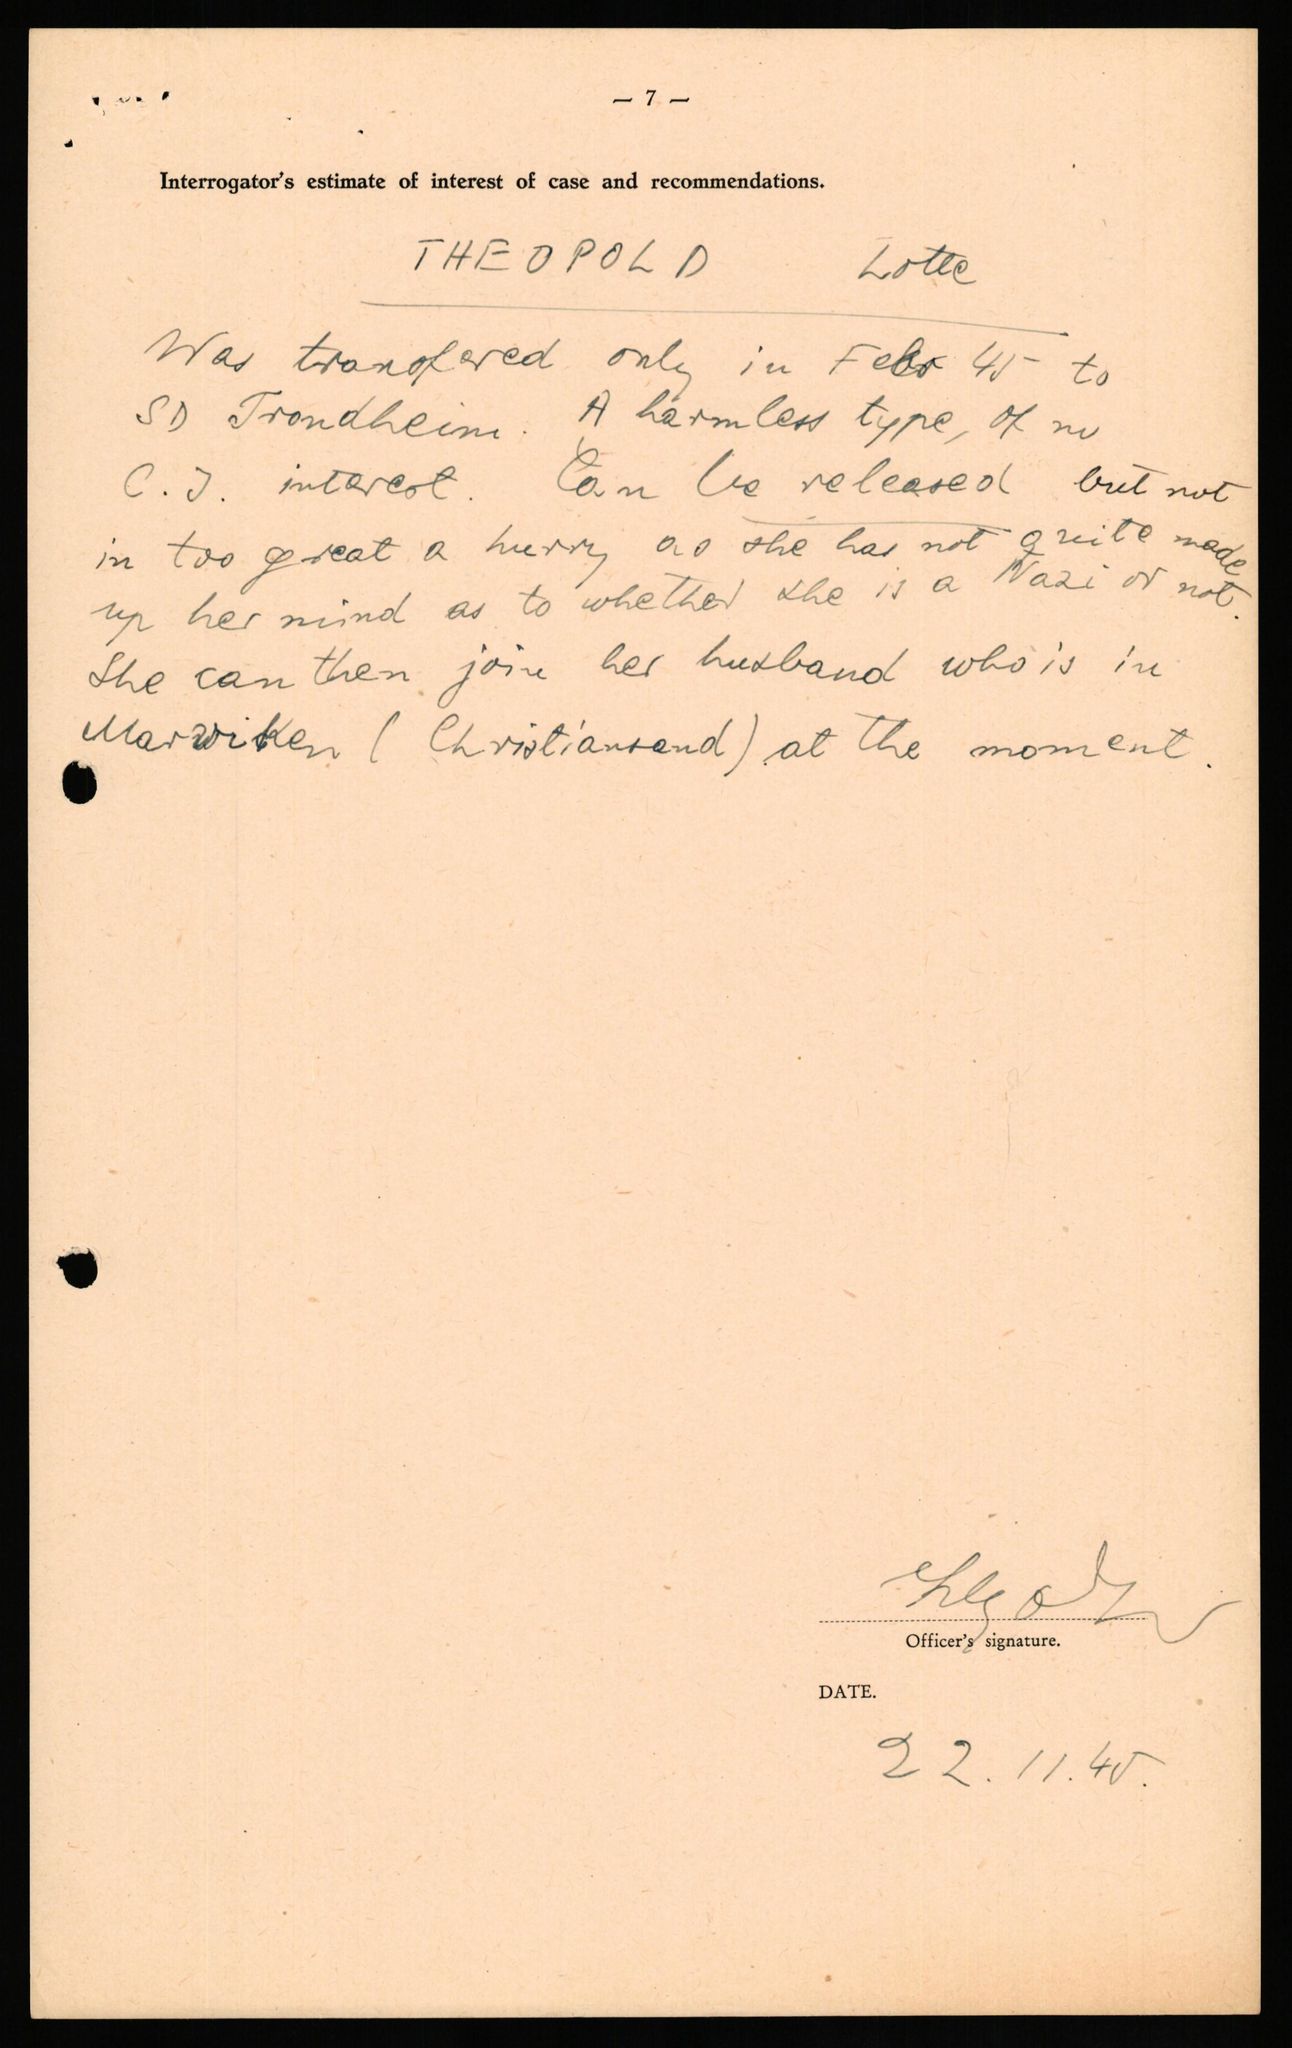 — 7 —
Interrogator's estimate of interest of case and recommendations.
THEOPOLD Lotte
Was transfered only in Febr 45 to
SD Trondheim. A harmless type, of no
C.I. interest. Can be released but not
in too great a hurry as she has not quite made
up her mind as to whether she is a Nazi or not.
She can then join her husband who is in
Marwiken (Christiansand) at the moment.
Officer's signature.
DATE.
22.11.45.